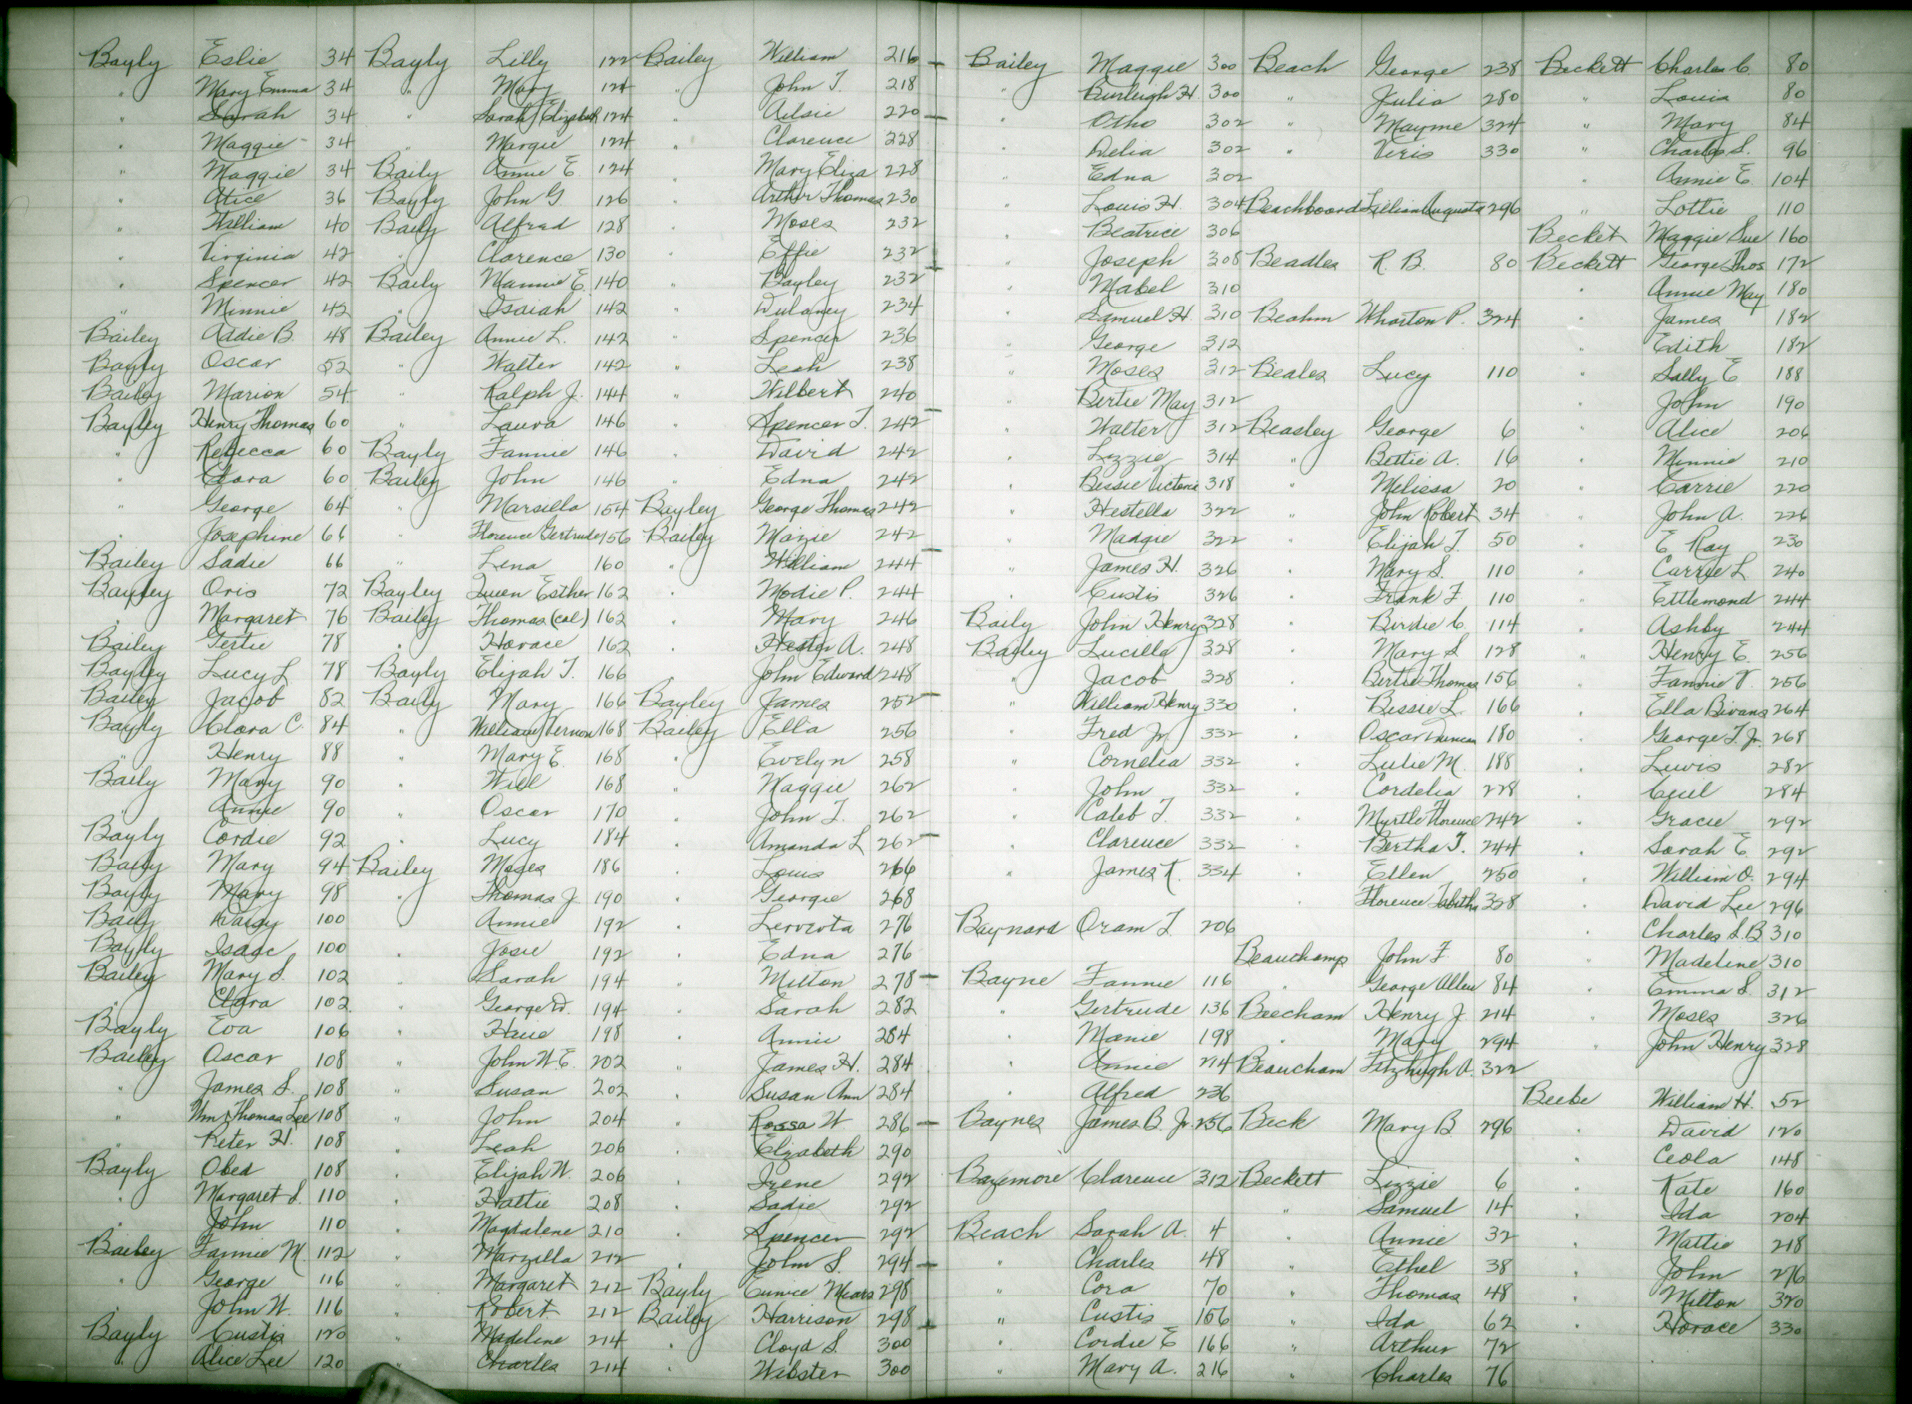 Bayly Eslie 34
" Mary Emma 34
" Sarah 34
" Maggie 34
" Maggie 34
" Alice 36
" William 40
" Virginia 42
" Spencer 42
" Minnie 42
Bailey Addie B. 48
Bayly Oscar 52
Bailey Marion 54
Bayley Henry Thomas 60
" Rebecca 60
" Clara 60
" George 64
" Josephine 66
Bailey Sadie 66
Bayley Oris 72
" Margaret 76
Bailey Gertie 78
Bayley Lucy L 78
Bailey Jacob 82
Bayly Clara C. 84
" Henry 88
Baily Mary 90
" Annie 90
Bayly Cordie 92
Baily Mary 94
Bayly Mary 98
Baily Daisy 100
Bayly Isaac 100
Bailey Mary S. 102
" Clara 102
Bayly Eva 106
Bailey Oscar 108
" James S. 108
" Wm Thomas Lee 108
" Peter H. 108
Bayly Obed 108
" Margaret S. 110
" John 110
Bailey Fannie M. 112
" George 116
" John W. 116
Bayly Custis 120
" Alice Lee 120
Bayly Lilly 122
" Mary 124
" Sarah Elizabeth 124
" Margie 124
Baily Annie E. 124
Bayly John G. 126
Baily Alfred 128
" Clarence 130
Baily Mannie E. 140
" Isaiah 142
Bailey Annie L. 142
" Walter 142
" Ralph J. 144
" Laura 146
Bayly Fannie 146
Bailey John 146
" Marsilla 154
" Florence Gertrude 156
" Lena 160
Bayley Queen Esther 162
Bailey Thomas (col) 162
" Horace 162
Bayly Elijah T. 166
Baily Mary 166
" William Vernon 168
" Mary E. 168
" Will 168
" Oscar 170
" Lucy 184
Bailey Moses 186
" Thomas J. 190
" Annie 192
" Josie 192
" Sarah 194
" George D. 194
" 198
" John W. E. 202
" Susan 202
" John 204
" Leah 206
" Elijah W. 206
" Hattie 208
" Magdalene 210
" Marzilla 212
" Margaret 212
" Robert 212
" Madeline 214
" Charles 214
Bailey William 216
" John T. 218
" Ailsie 220
" Clarence 228
" Mary Eliza 228
" Arthur Thomas 230
" Moses 232
" Effie 232
" Bayley 232
" Dulaney 234
" Spencer 236
" Leah 238
" Wilbert 240
" Spencer T. 242
" David 242
" Edna 242
Bayley George Thomas 242
Bailey Mazie 242
" William 244
" Modie P. 244
" Mary 246
" Hester A. 248
" John Edward 248
Bayley James 252
Bailey Ella 256
" Evelyn 258
" Maggie 262
" John T. 262
" Amanda L 262
" Louis 266
" Georgie 268
" 276
" Edna 276
" Milton 278
" Sarah 282
" Annie 284
" James H. 284
" Susan Ann 284
" Rossa W 286
" Elizabeth 290
" Irene 292
" Sadie 292
" Spencer 292
" John S. 294
Bayly Eunice Mears 298
Bailey Harrison 298
" Cloyd S. 300
" Webster 300
Bailey Maggie 300
" Burleigh H 300
" Otho 302
" Delia 302
" Edna 302
" Louis H. 304
" Beatrice 306
" Joseph 308
" Mabel 310
" Samuel H. 310
" George 312
" Moses 312
" Bertie May 312
" Walter 312
" Lizzie 314
" Bessie Victoria 318
" Hestella 322
" Madgie 322
" James H. 326
" Custis 326
Baily John Henry 328
Bailey Lucille 328
" Jacob 328
" William Henry 330
" Fred Jr. 332
" Cornelia 332
" John 332
" Caleb T. 332
" Clarence 332
" James K. 334
Baynard Oram T. 206
Bayne Fannie 116
" Gertrude 136
" Manie 198
" Annie 214
" Alfred 236
Baynes James B. Jr. 256
Bazemore Clarence 312
Beach Sarah A. 4
" Charles 48
" Cora 70
" Custis 156
" Cordie E 166
" Mary A. 216
Beach George 238
" Julia 280
" Mayme 324
" Veris 330
Beachboard Lillian Augusta 296
Beadles R. B. 80
Beahm Wharton P. 324
Beales Lucy 110
Beasley George 6
" Bettie A. 16
" Melissa 20
" John Robert 34
" Elijah T. 50
" Mary S. 110
" Frank F 110
" Birdie C. 114
" Mary S 128
" Bertie Thomas 156
" Bessie L. 166
" Oscar Duncan 180
" Lulie M. 188
" Cordelia 228
" Myrtle Florence 242
" Bertha T. 244
" Ellen 250
" Florence Tabitha 328
Beauchamp John F 80
" George Allen 84
Beecham Henry J. 214
" Mary 294
Beaucham Fitzhugh A. 322
Beck Mary B 296
Beckett Lizzie 6
" Samuel 14
" Annie 32
" Ethel 38
" Thomas 48
" Ida 62
" Arthur 72
" Charles 76
Beckett Charles C. 80
" Louis 80
" Mary 84
" Charles S. 96
" Annie E. 104
" Lottie 110
Becket Maggie Sue 160
Beckett George Thos. 172
" Annie May 180
" James 182
" Edith 182
" Sally E 188
" John 190
" Alice 206
" Minnie 210
" Carrie 220
" John A. 226
" E. Ray 230
" Carrye L 240
" Ettlemond 244
" Ashby 244
" Henry E. 256
" Fannie V. 256
" Ella Bivans 264
" George T. Jr. 268
" Lewis 282
" Cecil 284
" Gracie 292
" Sarah E 292
" William O. 294
" David Lee 296
" Charles S. B 310
" Madeline 310
" Emma S. 312
" Moses 326
" John Henry 328
Beebe William H. 52
" David 120
" Ceola 148
" Kate 160
" Ida 204
" Mattie 218
" John 276
" Milton 320
" Horace 330